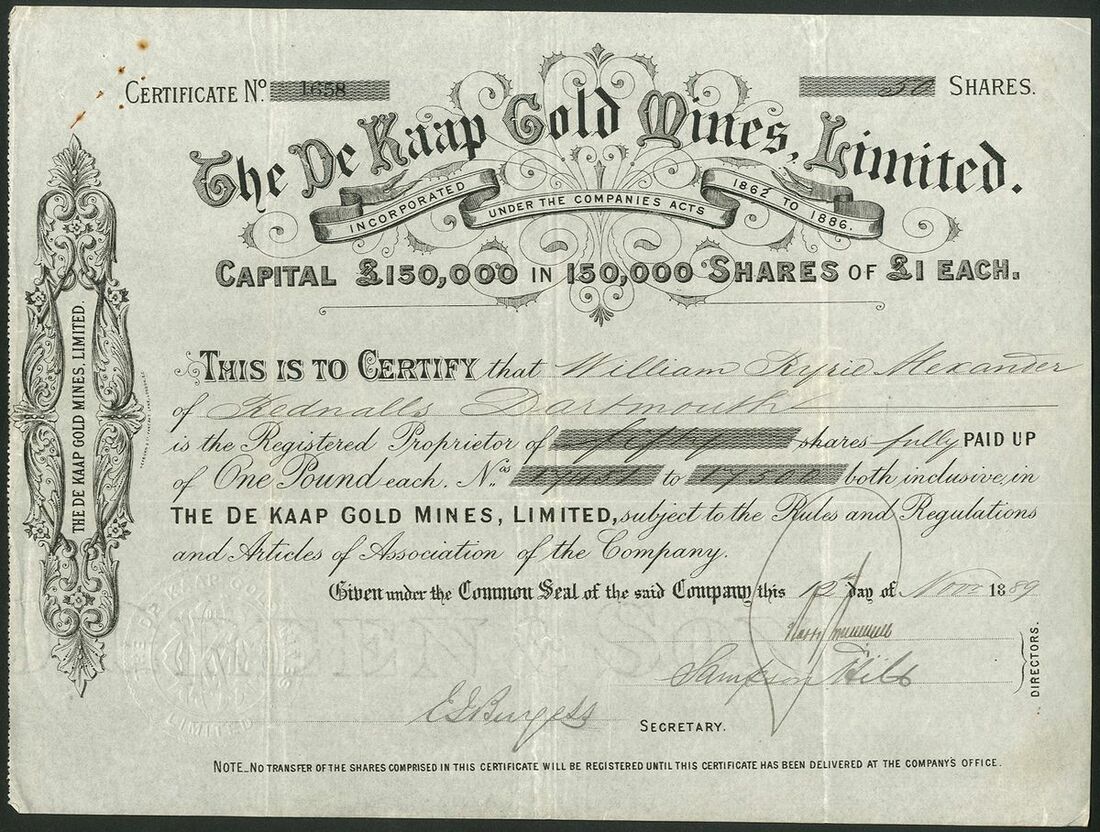 CERTIFICATE No. 1658
50 SHARES.
The De Kaap Gold Mines, Limited.
INCORPORATED UNDER THE COMPANIES ACTS 1862 TO 1886.
CAPITAL £150,000 IN 150,000 SHARES OF £1 EACH.
THIS IS TO CERTIFY that William Kyrie Alexander
of Kednalls Dartmouth
is the Registered Proprietor of fifty shares fully PAID UP
of One Pound each. Nos. 17451 to 17500 both inclusive, in
THE DE KAAP GOLD MINES, LIMITED, subject to the Rules and Regulations
and Articles of Association of the Company.
Given under the Common Seal of the said Company this 12th day of Novr 1889
Sampson Hill
DIRECTORS.
E J Burgess SECRETARY.
NOTE_NO TRANSFER OF THE SHARES COMPRISED IN THIS CERTIFICATE WILL BE REGISTERED UNTIL THIS CERTIFICATE HAS BEEN DELIVERED AT THE COMPANY'S OFFICE.
THE DE KAAP GOLD MINES, LIMITED.
DE KAAP GOLD MINES LIMITED